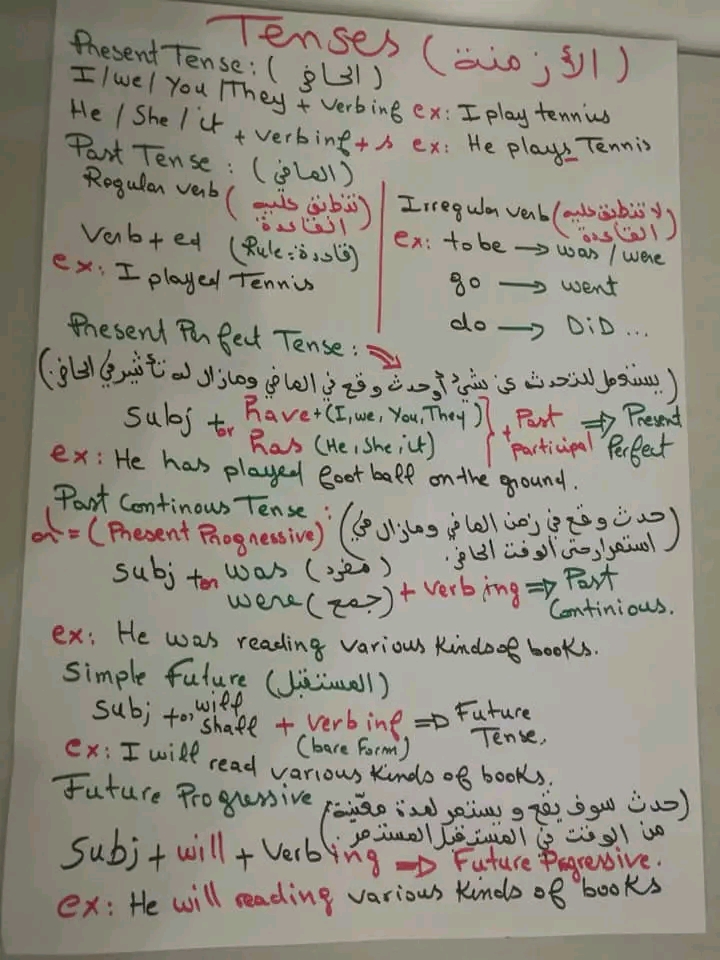 Tenses (الأزمنة)
Present Tense: (الحاضر)
I/we/You/They + verb inf ex: I play tennius
He / She / it + verb inf + s ex: He plays Tennis
Past Tense: (الماضي)
Regular verb (تنطبق عليه القاعدة)
Verb + ed (Rule = قاعدة)
ex: I played Tennis
Irregular verb (لا تنطبق عليه القاعدة)
ex: to be → was / were
go → went
do → DiD ...
Present Perfect Tense:
(يستعمل للتحدث عن شيء أو حدث وقع في الماضي ومازال له تأثير في الحاضر)
Subj + or have + (I, we, You, They)
has (He, She, it)
+ Past participal ⇒ Present Perfect
ex: He has played foot ball on the ground.
Past Continous Tense:
or = (Present Progressive)
(حدث وقع في زمن الماضي ومازال في
استمرار حتى الوقت الحاضر.
Subj + or was (مفرد)
were (جمع)
+ verb ing ⇒ Past Continious.
ex: He was reading various kinds of books.
Simple Future (المستقبل)
Subj + or will shall + verb inf ⇒ Future Tense.
(bare Form)
ex: I will read various kinds of books.
Future Progressive
(حدث سوف يقع و يستمر لمدة معيّنة
من الوقت في المستقبل المستمر.)
Subj + will + Verb ing ⇒ Future Progressive.
ex: He will reading various kinds of books